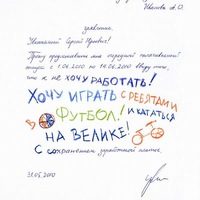 Иванова А.О.
заявление.
Уважаемый Сергей Юрьевич!
Прошу предоставить мне очередной оплачиваемый
отпуск с 1.06.2010 по 14.06.2010 ввиду того,
что я не ХОЧУ РАБОТАТЬ!
ХОЧУ ИГРАТЬ С РЕБЯТАМИ
В ФУТБОЛ! И КАТАТЬСЯ
НА ВЕЛИКЕ!
С сохранением заработной платы.
31.05.2010